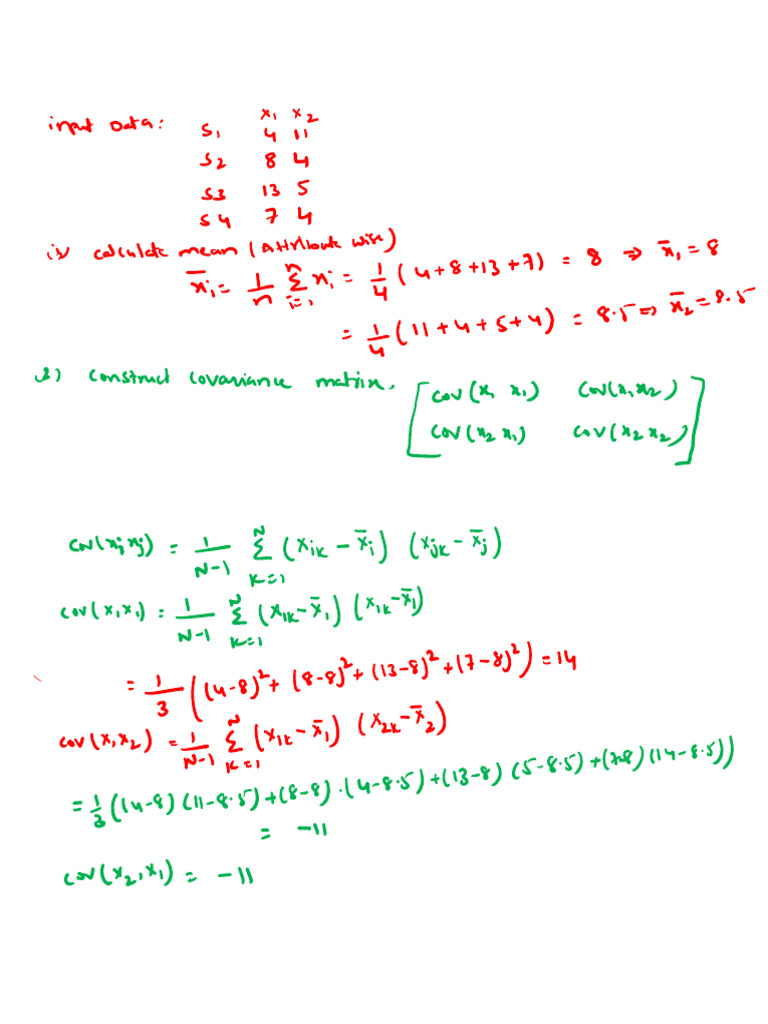 input Data:
x₁ x₂
S₁ 4 11
S2 8 4
S3 13 5
S4 7 4
1) calculate mean (Attribute wise)
x̄ᵢ = 1/n Σⁿᵢ₌₁ xᵢ = 1/4 (4+8+13+7) = 8 ⇒ x̄₁ = 8
= 1/4 (11+4+5+4) = 8.5 ⇒ x̄₂ = 8.5
2) construct covariance matrix.
[cov(x₁ x₁) cov(x₁ x₂)
cov(x₂ x₁) cov(x₂ x₂)]
cov(xᵢ xⱼ) = 1/(N-1) Σᴺₖ₌₁ (xᵢₖ - x̄ᵢ) (xⱼₖ - x̄ⱼ)
cov(x₁ x₁) = 1/(N-1) Σᴺₖ₌₁ (x₁ₖ - x̄₁) (x₁ₖ - x̄₁)
= 1/3 ((4-8)² + (8-8)² + (13-8)² + (7-8)²) = 14
cov(x₁ x₂) = 1/(N-1) Σᴺₖ₌₁ (x₁ₖ - x̄₁) (x₂ₖ - x̄₂)
= 1/3 ((4-8) (11-8.5) + (8-8).(4-8.5) + (13-8) (5-8.5) + (7-8) (14-8.5))
= -11
cov(x₂, x₁) = -11